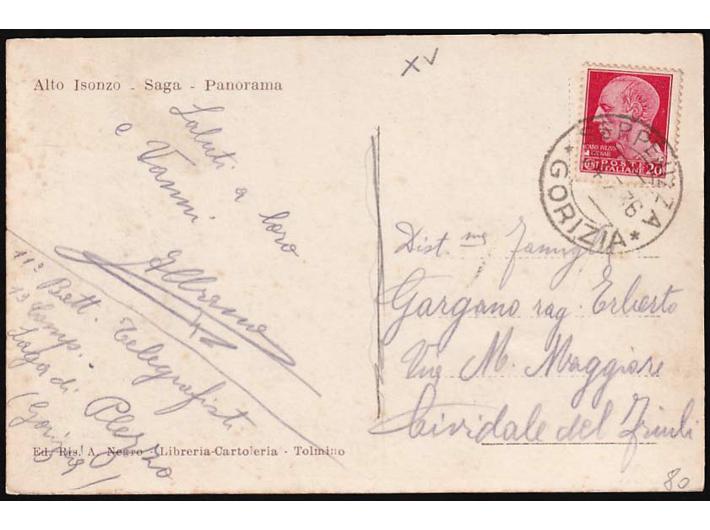 XV
Alto Isonzo - Saga - Panorama
Saluti a loro
e Vanni
11° Batt. Telegrafisti
13 Comp.
Saga di Plezzo
(Gorizia)
POSTE
ITALIANE 20
SERPENIZZA
* GORIZIA *
36
Dist.me Famiglia
Gargano rag. Erberto
Via M. Maggiore
Cividale del Friuli
Ed. Ris. A. Negro - Libreria-Cartoleria - Tolmino
80